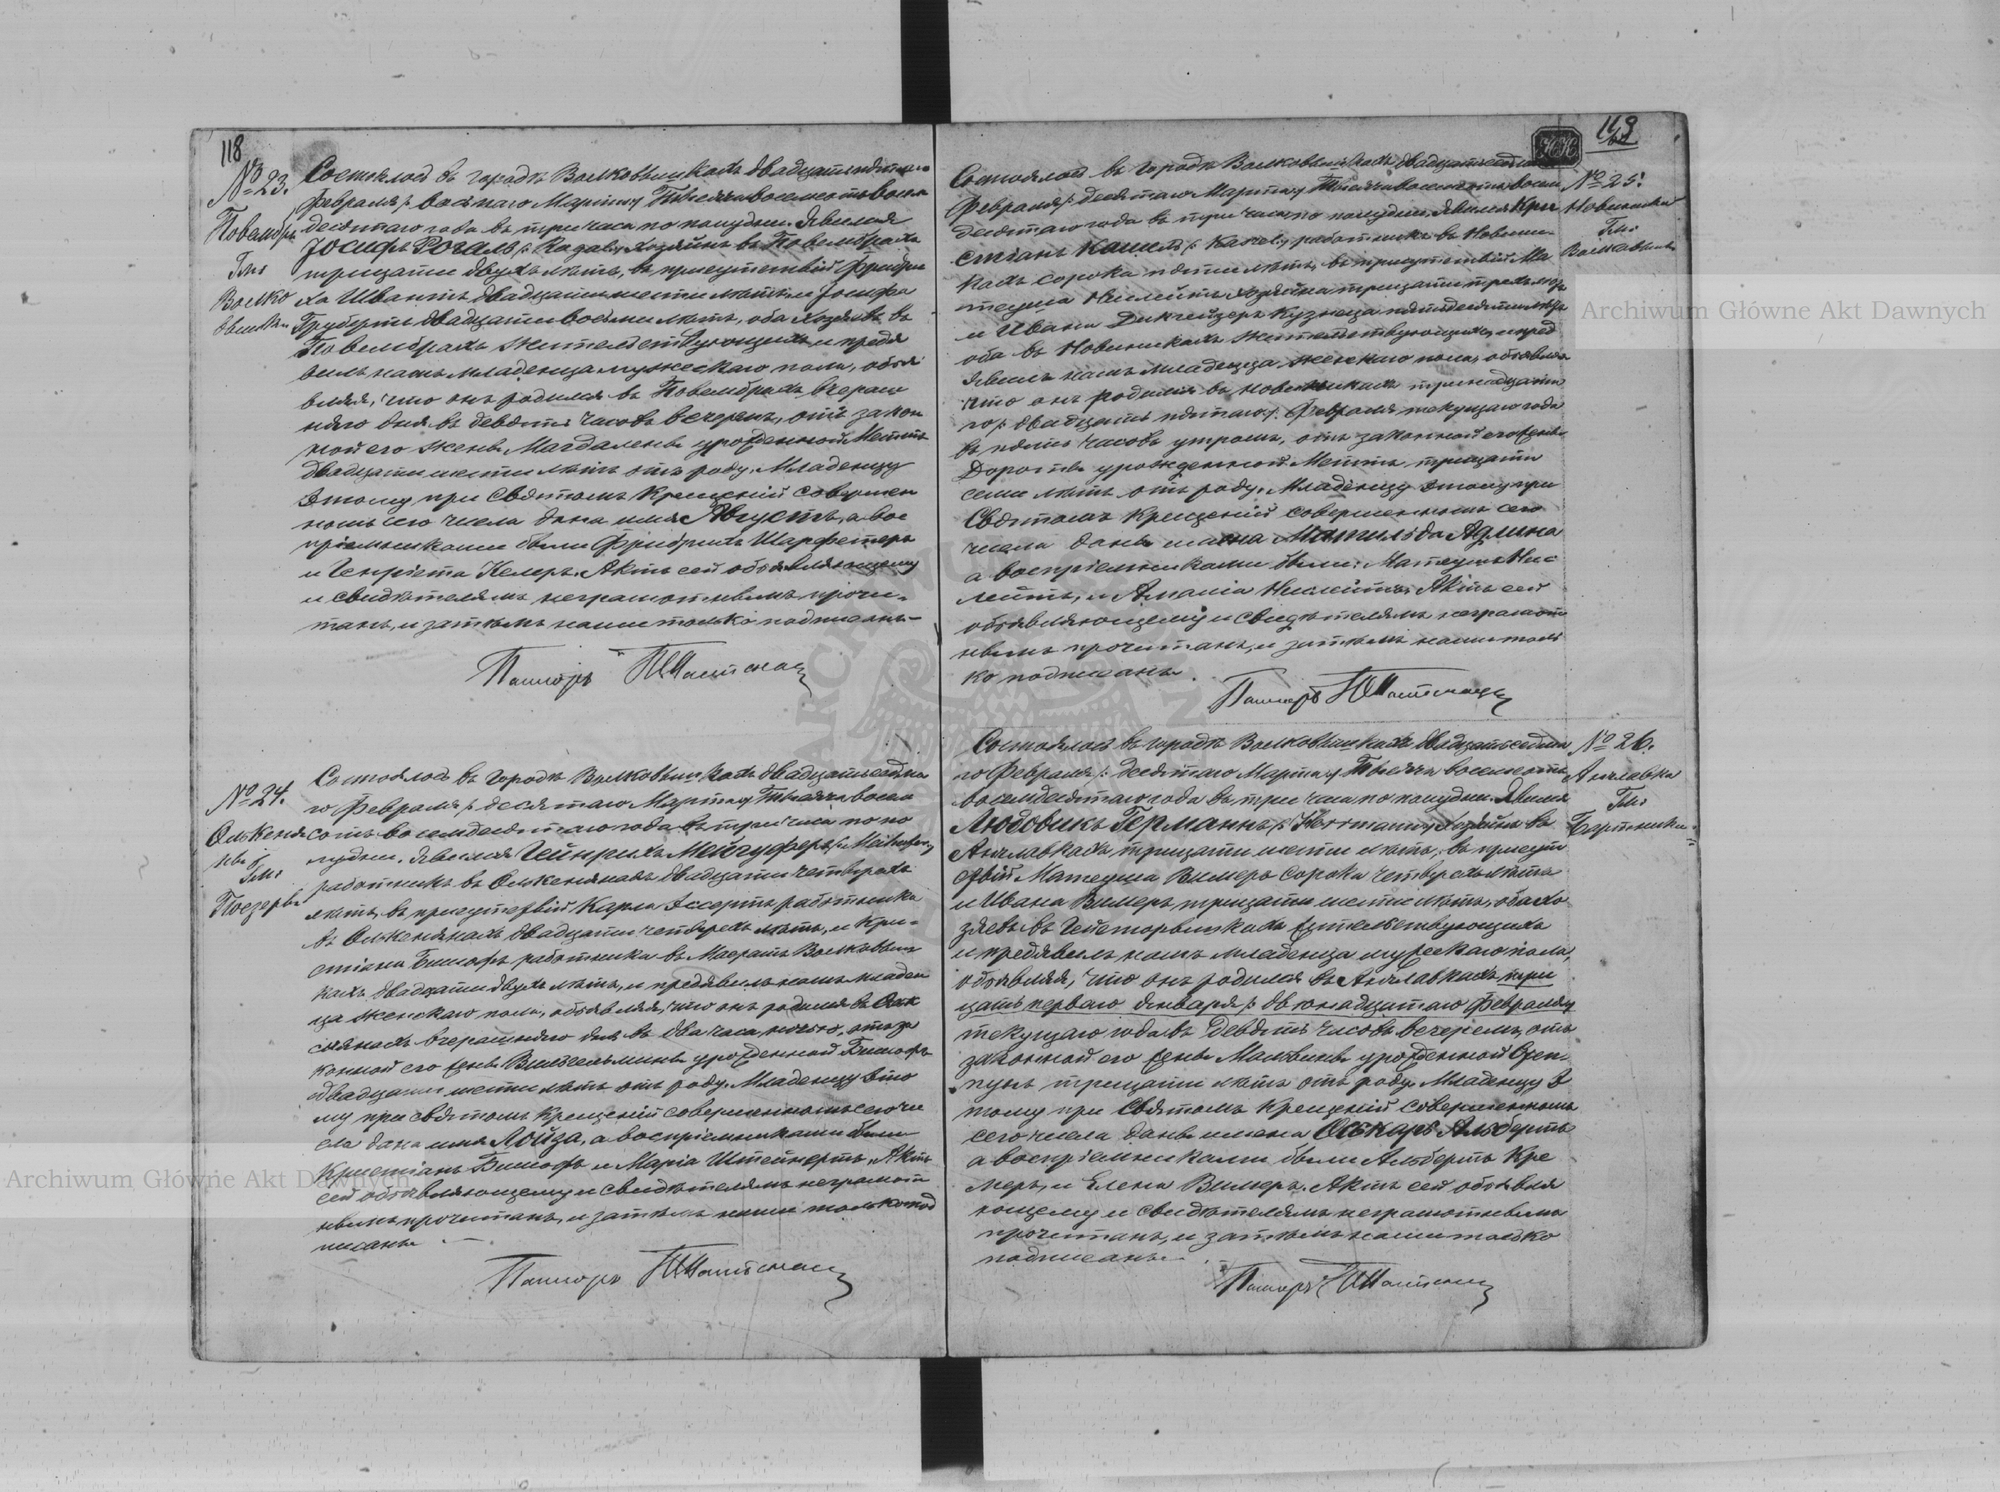 118
№ 23.
Повембры
Гмн
Волко
вышки
Состоялось въ городѣ Волковышкахъ двадцать пятаго
Февраля /: восьмаго Марта :/ тысяча восемьсотъ восемь
десятаго года въ три часа по полудни. Явился
Іосифъ Рогалъ, хозяинъ въ Повембрахъ
тридцати двухъ лѣтъ, въ присутствіи Фридри
ха Швантъ двадцати шести лѣтъ и Іосифа
Груберта двадцати восьми лѣтъ, оба хозяевъ въ
Повембрахъ жительствующихъ и предъя
вилъ намъ младенца мужескаго пола, объя
вляя, что онъ родился въ Повембрахъ вчераш
няго дня въ девять часовъ вечеромъ, отъ закон
ной его жены Магдалены урожденной Меттъ
двадцати шести лѣтъ отъ роду. Младенцу
этому при Святомъ Крещеніи совершен
номъ сего числа дано имя Августъ, а вос
пріемниками были Фридрихъ Шарфетеръ
и Генріета Келеръ. Актъ сей объявляющему
и свидѣтелямъ неграмотнымъ прочи-
танъ, и затѣмъ нами только подписанъ.—
Пасторъ
№ 24.
Олькеня
ны Гмн
Поезеры
Состоялось въ городѣ Волковышкахъ двадцать седьма
го Февраля /: десятаго Марта :/ тысяча восемь
сотъ восемьдесятаго года въ три часа по по
лудни. Явился Гейнрихъ Мейгуферъ
работникъ въ Олькенянахъ двадцати четырехъ
лѣтъ, въ присутствіи Карла Ассертъ работника
въ Олькенянахъ двадцати четырехъ лѣтъ, и Кри-
стіана Бишофъ работника въ Волковыш
кахъ двадцати двухъ лѣтъ, и предъявилъ намъ младен
ца женскаго пола, объявляя, что онъ родился въ Оль
кенянахъ вчерашняго дня въ два часа ночью, отъ за
конной его жены Вильгельмины урожденной Бишофъ
двадцати шести лѣтъ отъ роду. Младенцу это
му при Святомъ Крещеніи совершенномъ сего чи
сла дано имя Лойза, а воспріемниками были
Кристіанъ Бишофъ и Марія Штейнертъ. Актъ
сей объявляющему и свидѣтелямъ неграмот
нымъ прочитанъ, и затѣмъ нами только под
писанъ.—
Пасторъ
119
№ 25.
Новиники
Гмн
Волковышк
Состоялось въ городѣ Волковышкахъ двадцать седьмаго
Февраля /: десятаго Марта :/ тысяча восемьсотъ восемь
десятаго года въ три часа по полудни. Явился Кри
стіанъ работникъ въ Новини
кахъ сорока пяти лѣтъ, въ присутствіи Ма
теуша хозяина тридцати трехъ лѣтъ
и Ивана кузнеца пятидесяти лѣтъ
оба въ Новиникахъ жительствующихъ, и предъ
явилъ намъ младенца женскаго пола, объявляя
что онъ родился въ Новиникахъ тринадцата
го /: двадцать пятаго :/ Февраля текущаго года
въ пять часовъ утромъ, отъ законной его жены
Доротеи урожденной Меттъ тридцати
семи лѣтъ отъ роду. Младенцу этому при
Святомъ Крещеніи совершенномъ сего
числа даны имена Матильда Адлина
а воспріемниками были: Матеушъ
и Амалія Актъ сей
объявляющему и свидѣтелямъ неграмот
нымъ прочитанъ, и затѣмъ нами толь
ко подписанъ.
Пасторъ
№ 26.
Анчлавки
Гмн
Бартники
Состоялось въ городѣ Волковышкахъ двадцать седьма
го Февраля /: десятаго Марта :/ тысяча восемьсотъ
восемьдесятаго года въ три часа по полудни. Явился
Людовикъ Германнъ /: Herrmann :/ хозяинъ въ
Анчлавкахъ тридцати шести лѣтъ, въ присут
ствіи Матеуша Вимеръ сорока четырехъ лѣтъ
и Ивана Вимеръ, тридцати шести лѣтъ, оба хо
зяевъ въ жительствующихъ
и предъявилъ намъ младенца мужескаго пола,
объявляя, что онъ родился въ Анчлавкахъ три
дцать перваго Января /: двенадцатаго Февраля :/
текущаго года въ девять часовъ вечеромъ, отъ
законной его жены Мальвины урожденной
тридцати лѣтъ отъ роду. Младенцу э
тому при Святомъ Крещеніи совершенномъ
сего числа даны имена Оскаръ Альбертъ
а воспріемниками были Альбертъ Кре
меръ, и Елена Вимеръ. Актъ сей объявля
ющему и свидѣтелямъ неграмотнымъ
прочитанъ, и затѣмъ нами только
подписанъ.—
Пасторъ
Archiwum Główne Akt Dawnych
Archiwum Główne Akt Dawnych